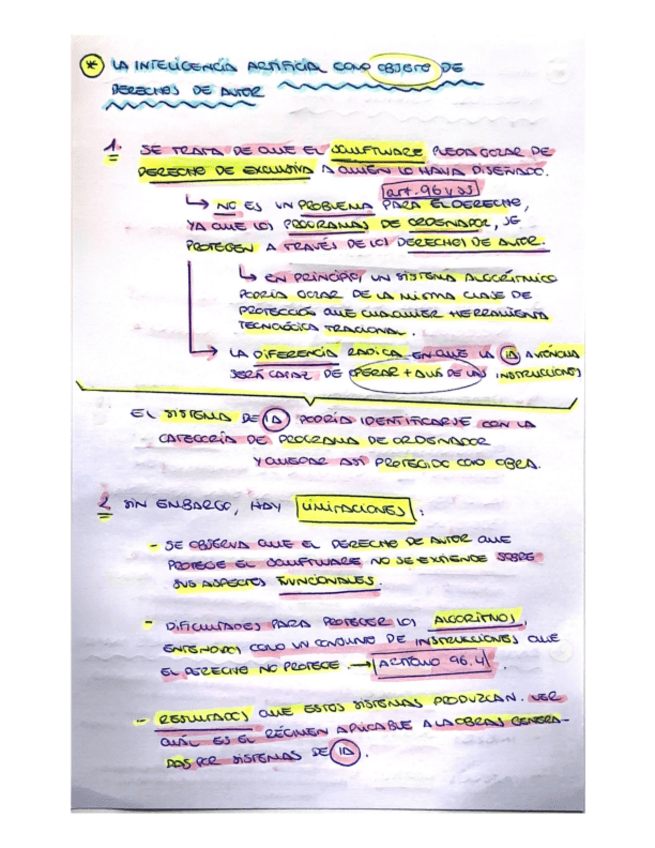 * LA INTELIGENCIA ARTIFICIAL COMO OBJETO DE
DERECHOS DE AUTOR
1. SE TRATA DE QUE EL SOUFTWARE PUEDA GOZAR DE
DERECHO DE EXCLUSIVA A QUIÉN LO HAYA DISEÑADO.
art. 96 y ss
↳ NO ES UN PROBLEMA PARA EL DERECHO,
YA QUE LOS PROGRAMAS DE ORDENADOR, SE
PROTEGEN A TRAVÉS DE LOS DERECHOS DE AUTOR.
↳ EN PRINCIPIO, UN SISTEMA ALGORÍTMICO
PODRÍA GOZAR DE LA MISMA CLASE DE
PROTECCIÓN QUE CUALQUIER HERRAMIENTA
TECNOLÓGICA TRACIONAL.
→ LA DIFERENCIA RADICA EN QUE LA IA AUTÓNOMA
SERÁ CAPAZ DE OPERAR + ALLÁ DE LAS INSTRUCCIONES
EL SISTEMA DE IA PODRÍA IDENTIFICARSE CON LA
CATEGORÍA DE PROGRAMA DE ORDENADOR
Y QUEDAR ASÍ PROTEGIDO COMO OBRA.
2 SIN EMBARGO, HAY LIMITACIONES:
- SE OBSERVA QUE EL DERECHO DE AUTOR QUE
PROTEGE EL SOUFTWARE NO SE EXTIENDE SOBRE
SUS ASPECTOS FUNCIONALES.
- DIFICULTADES PARA PROTEGER LOS ALGORITMOS,
ENTENDIDOS COMO UN CONJUNTO DE INSTRUCCIONES QUE
EL DERECHO NO PROTEGE. → ARTÍCULO 96.4.
- RESULTADOS QUE ESTOS SISTEMAS PRODUZCAN. VER
CUÁL ES EL RÉGIMEN APLICABLE A LA OBRAS GENERA-
DAS POR SISTEMAS DE IA.